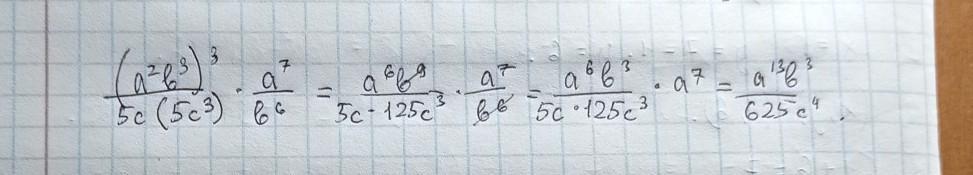 (a²b³)³/5c(5c³) · a⁷/b⁶ = a⁶b⁹/5c · 125c³ · a⁷/b⁶ = a⁶b³/5c · 125c³ · a⁷ = a¹³b³/625c⁴.